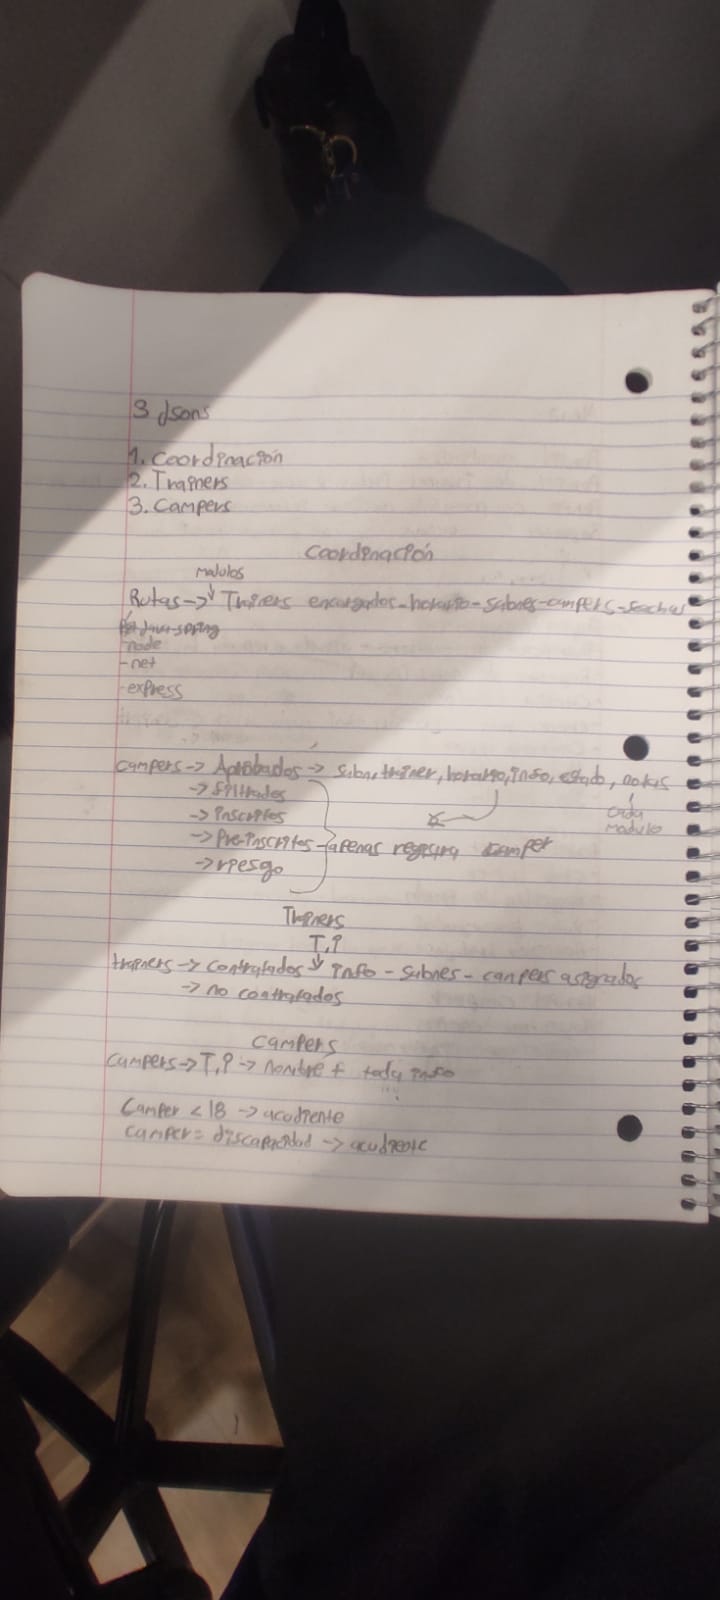 3 Jsons
1. Coordinación
2. Trainers
3. Campers
Coordinación
Modulos
Rutas -> ↓ Trainers encargados - horario - salones - campers - fechas
Java-spring
-node
-net
-express
campers -> Aprobados -> salon, trainer, horario, info, estado, notas
-> filtrados
cada
modulo
-> inscritos
-> Pre-inscritos - apenas registra camper
-> riesgo
Trainers
T,P
trainers -> contratados ↓ info - salones - campers asignados
-> no contratados
campers
campers -> T,P -> nombre + toda info
Camper < 18 -> acudiente
camper = discapacidad -> acudiente